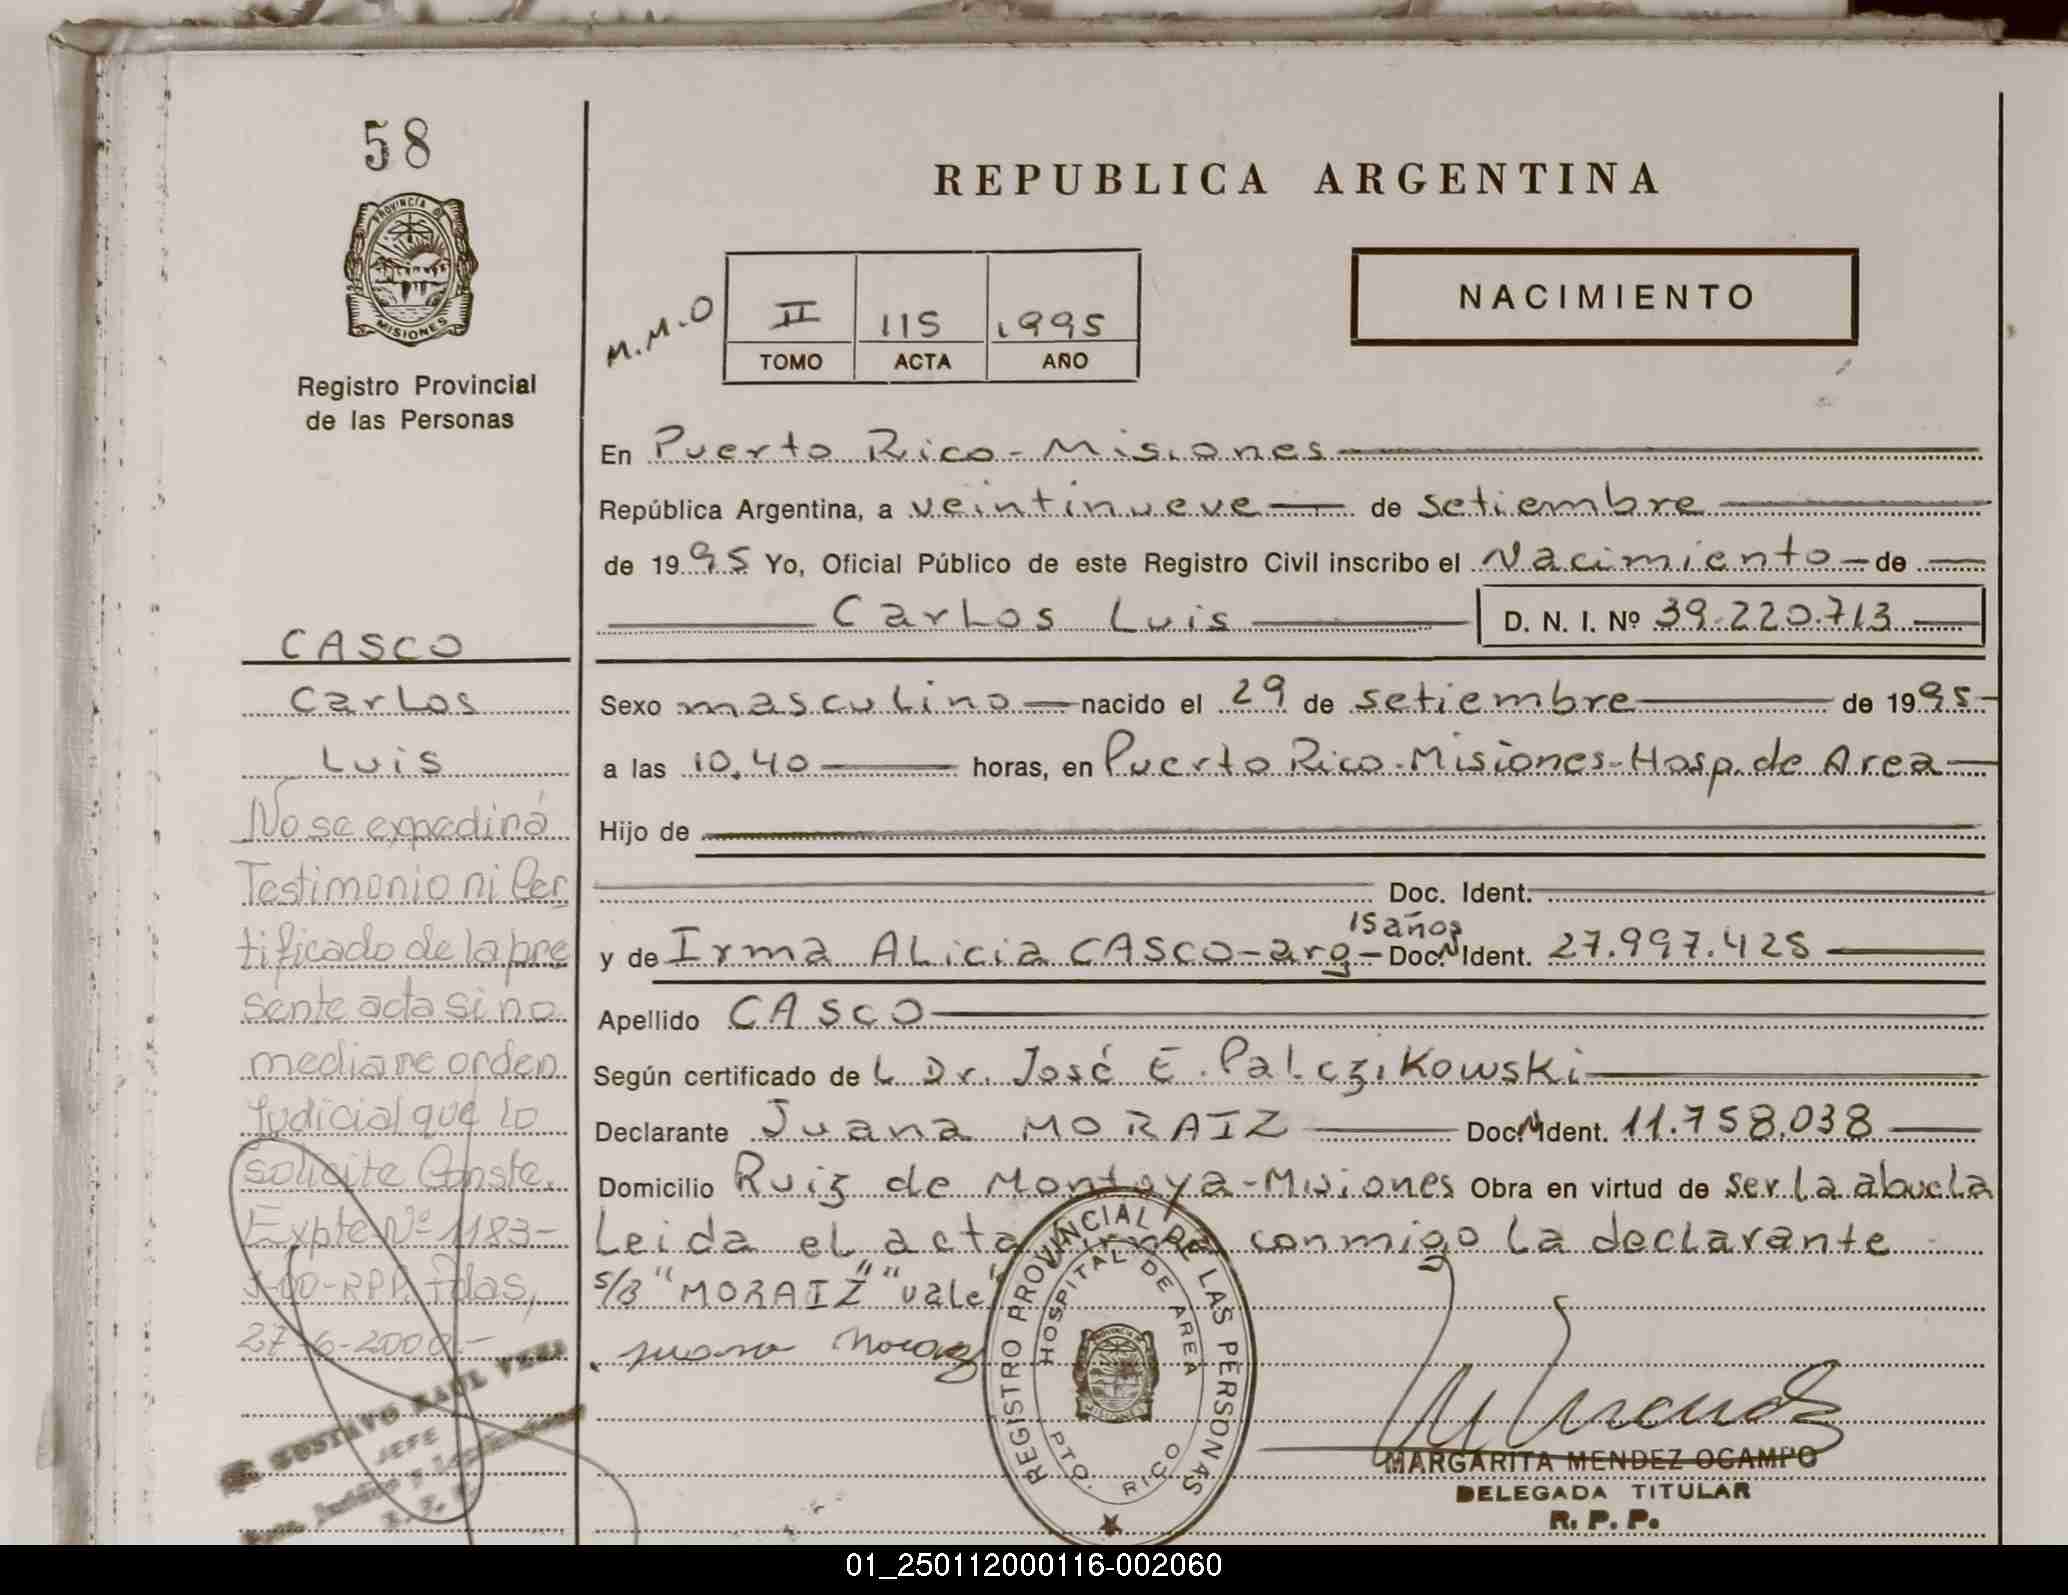 58
PROVINCIA DE
MISIONES
Registro Provincial
de las Personas
CASCO
Carlos
Luis
No se expedirá
Testimonio ni Cer
tificado de la pre
sente acta si no
mediare orden
Judicial que lo
solicite Conste.
Expte Nº 1183-
J-00-RPP. Pdas,
27-6-2000.-
GUSTAVO RAUL
JEFE
REPUBLICA ARGENTINA
M.M.O
II 115 1995
TOMO ACTA AÑO
NACIMIENTO
En Puerto Rico - Misiones
República Argentina, a veintinueve de setiembre
de 1995 Yo, Oficial Público de este Registro Civil inscribo el Nacimiento de
Carlos Luis D. N. I. Nº 39.220.713
Sexo masculino nacido el 29 de setiembre de 1995
a las 10,40 horas, en Puerto Rico - Misiones - Hosp. de Area
Hijo de
Doc. Ident.
15 años
y de Irma Alicia CASCO - arg - Doc. N Ident. 27.997.425
Apellido CASCO
Según certificado de L Dr. José E. Palczikowski
Declarante Juana MORAIZ Doc. N Ident. 11.758.038
Domicilio Ruiz de Montoya - Misiones Obra en virtud de ser la abuela
Leida el acta firma conmigo la declarante
s/B "MORAIZ" "vale"
Juana Moraiz
REGISTRO PROVINCIAL DE LAS PERSONAS
HOSPITAL DE AREA
PTO. RICO
MARGARITA MENDEZ OCAMPO
DELEGADA TITULAR
R. P. P.
01_250112000116-002060